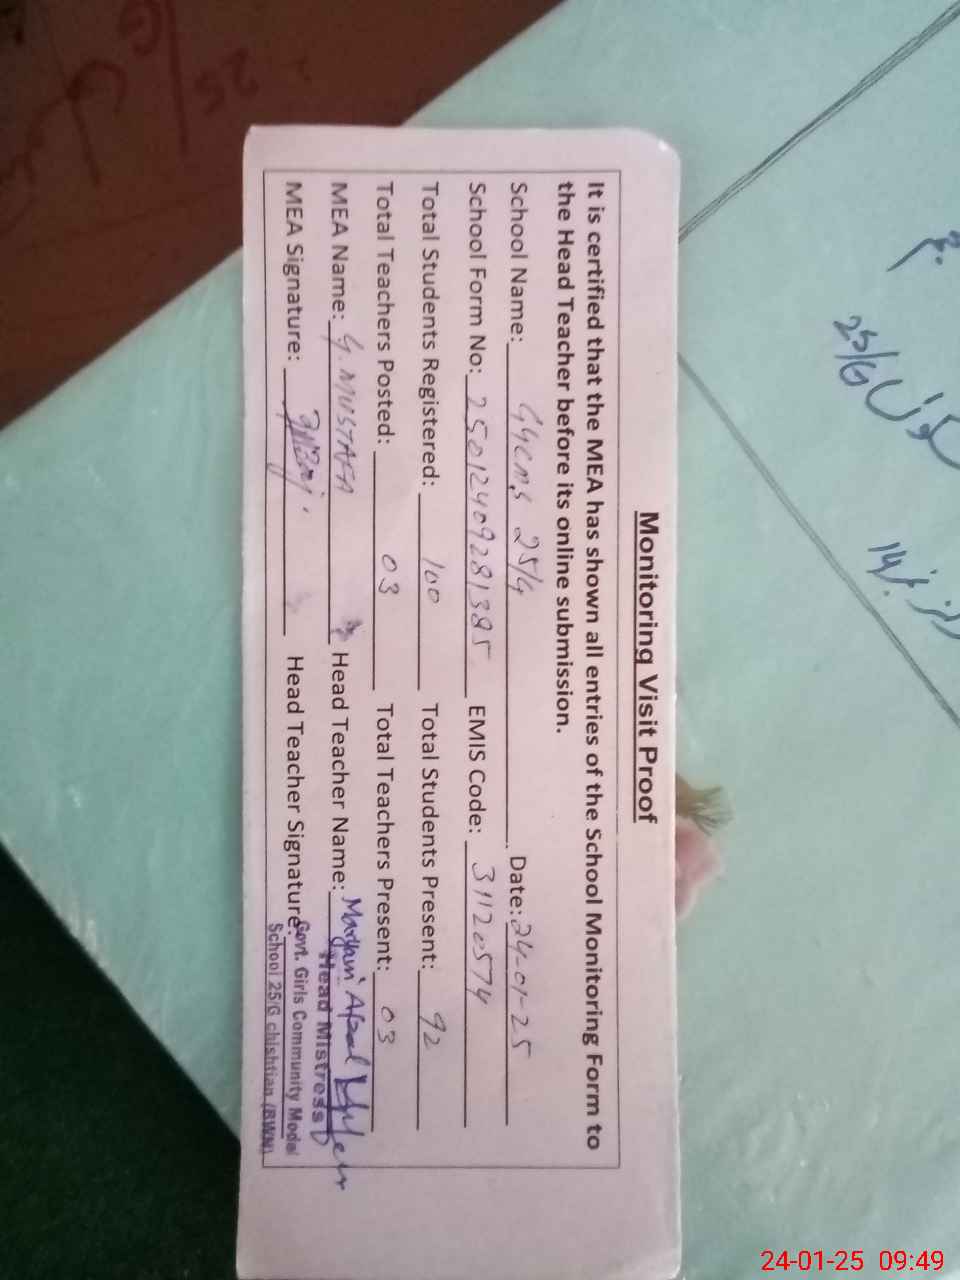 Monitoring Visit Proof
It is certified that the MEA has shown all entries of the School Monitoring Form to
the Head Teacher before its online submission.
School Name: GGCMS 25/G Date: 24-01-25
School Form No: 25012409281385 EMIS Code: 31120574
Total Students Registered: 100 Total Students Present: 92
Total Teachers Posted: 03 Total Teachers Present: 03
MEA Name: G. MUSTAFA Head Teacher Name: Maryam Afzal
MEA Signature: Head Teacher Signature:
Head Mistress
Govt. Girls Community Model
School 25/G chishtian (BWN)
25/G
24-01-25 09:49